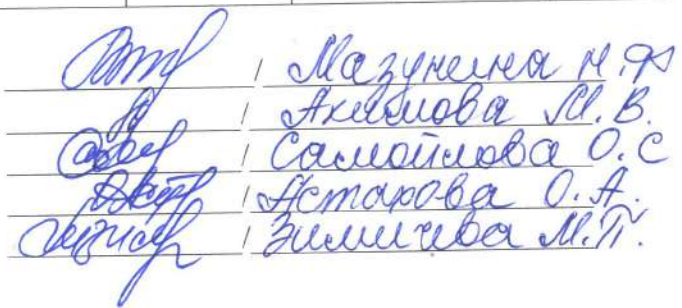 / Мазунина Н.Ф
/ Акимова М.В.
/ Самойлова О.С
/ Астахова О.А.
/ Зимичева М.П.